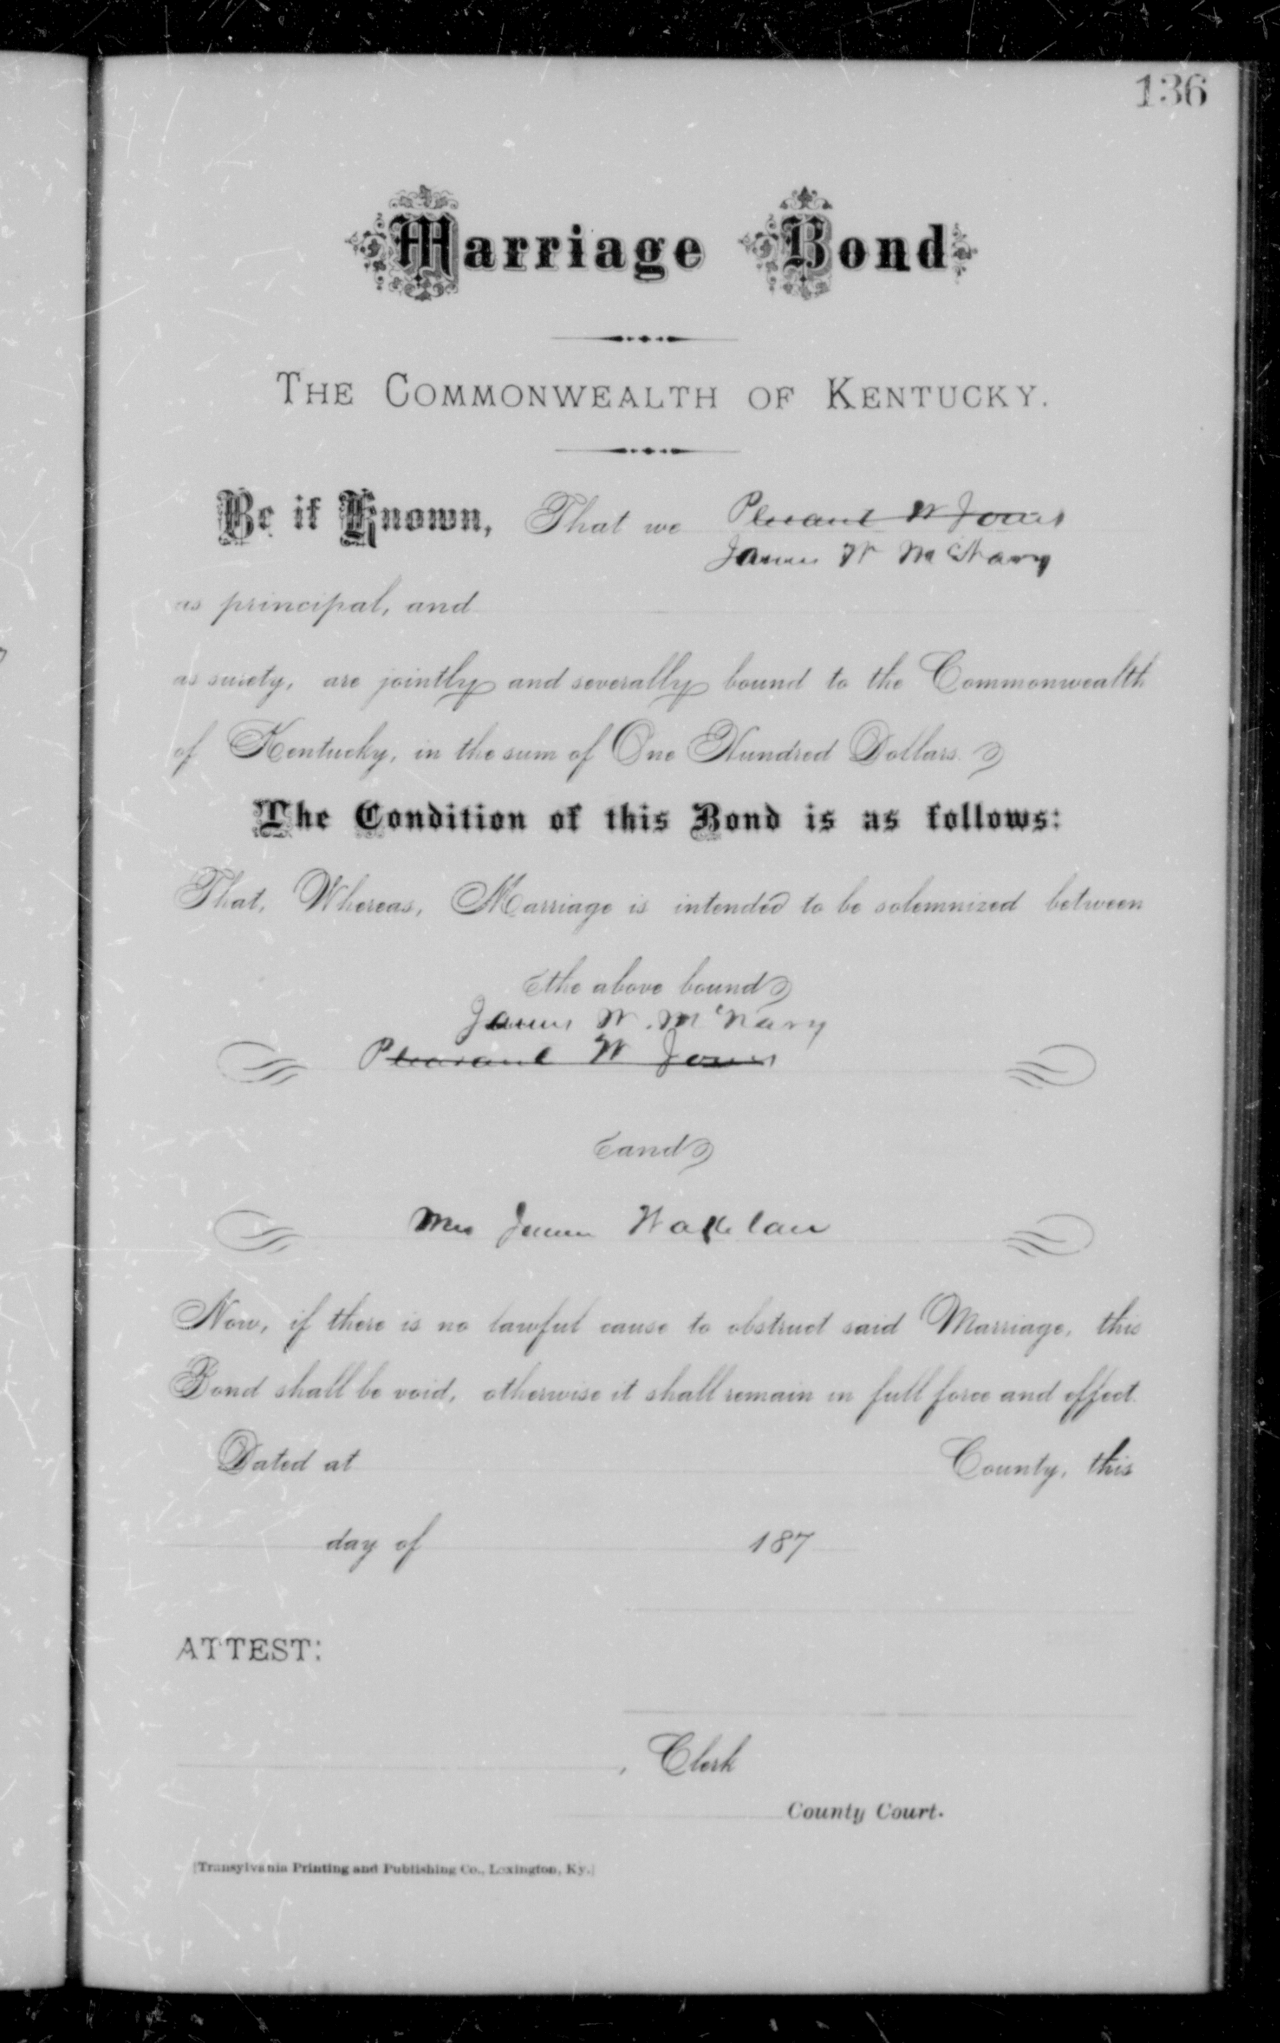 136
Marriage Bond
THE COMMONWEALTH OF KENTUCKY.
Be it Known, That we Pleasant W Jones
James W McNary
as principal, and
as surety, are jointly and severally bound to the Commonwealth
of Kentucky, in the sum of One Hundred Dollars.
The Condition of this Bond is as follows:
That, Whereas, Marriage is intended to be solemnized between
the above bound
James W. McNary
Pleasant W Jones
and
Mrs
Now, if there is no lawful cause to obstruct said Marriage, this
Bond shall be void, otherwise it shall remain in full force and effect.
Dated at County, this
day of 187
ATTEST:
, Clerk
County Court.
[Transylvania Printing and Publishing Co., Lexington, Ky.]